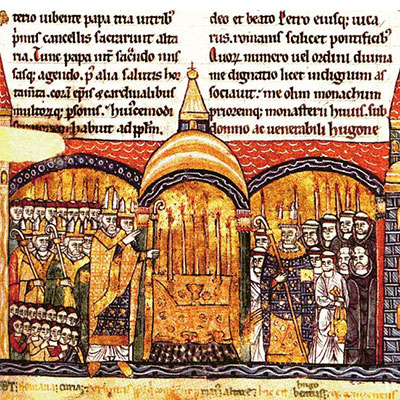 terio iubente papa tria
primis cancellis sacrarunt alta
ria. Tunc papa int̄ sac̄ndo mis
sasq; agendo. p̄ alia salutis hor
tam̄ta. corā ep̄is & cardinalibus
multorq; p̄sonis. huiuscemodi
sermonem habuit ad pplm̄.
deo et beato petro eiusq; uica
riis. romanis scilicet pontificib;
Quorū numero uel ordini diuina
me dignatio licet indignum as
sociauit: me olim monachum
prioremq; monasterii huius. sub
domno ac uenerabili hugone
hugo